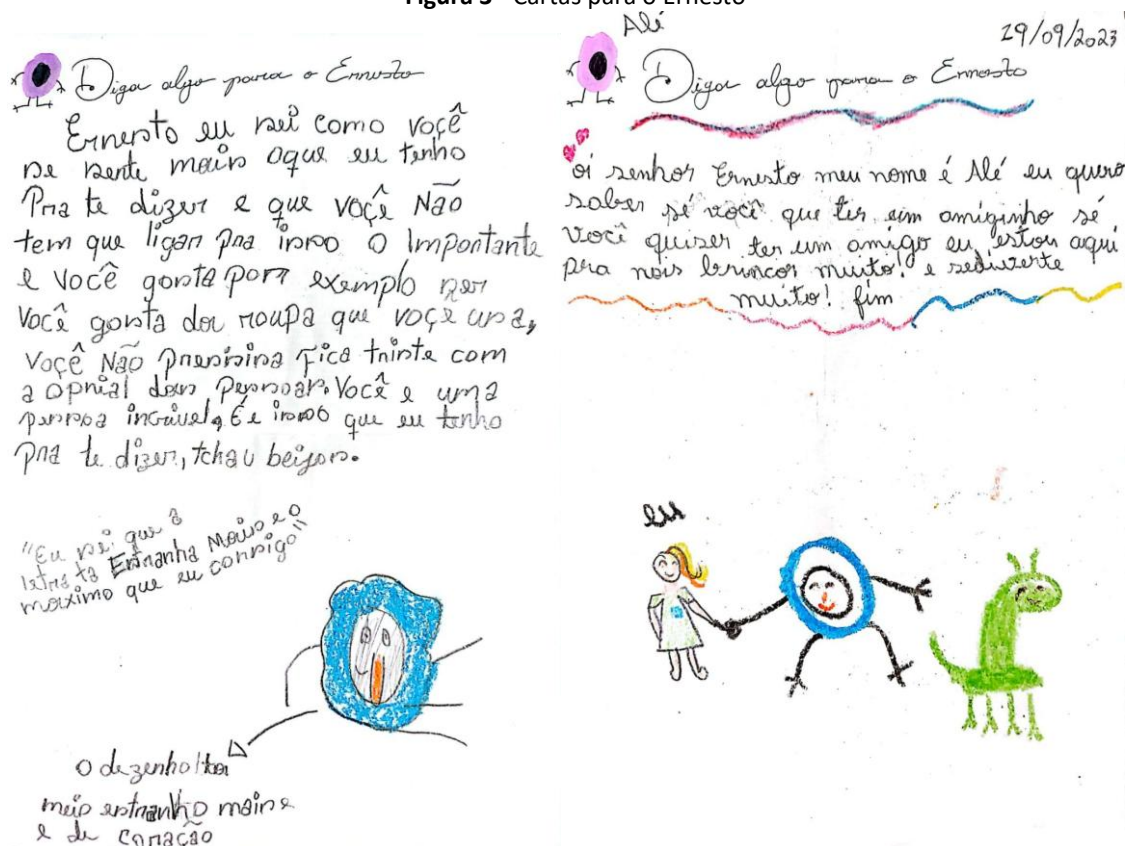 Figura 3 - Cartas para o Ernesto
Diga algo para o Ernesto
Ernesto eu sei como você
se sente mais oque eu tenho
Pra te dizer e que voçê Não
tem que ligar pra isso O Importante
e você gosta por exemplo
Você gosta da roupa que voçe usa,
voçê Não presisisa Fica triste com
a opnial das Pessoas. Você e uma
pessoa incrivel, É e isso que eu tenho
pra te dizer, tchau beijos.
"Eu sei que a
letra ta Estranha Mais e o
maximo que eu consigo"
o dezenho ta
meio estranho mais e
e de coração
Alé
29/09/2023
Diga algo para o Ernesto
oi senhor Ernesto meu nome é Alé eu quero
saber sé você que ter um amiguinho sé
você quiser ter um amigo eu estou aqui
pra nois brincar muito! e sediverte
muito! fim
eu